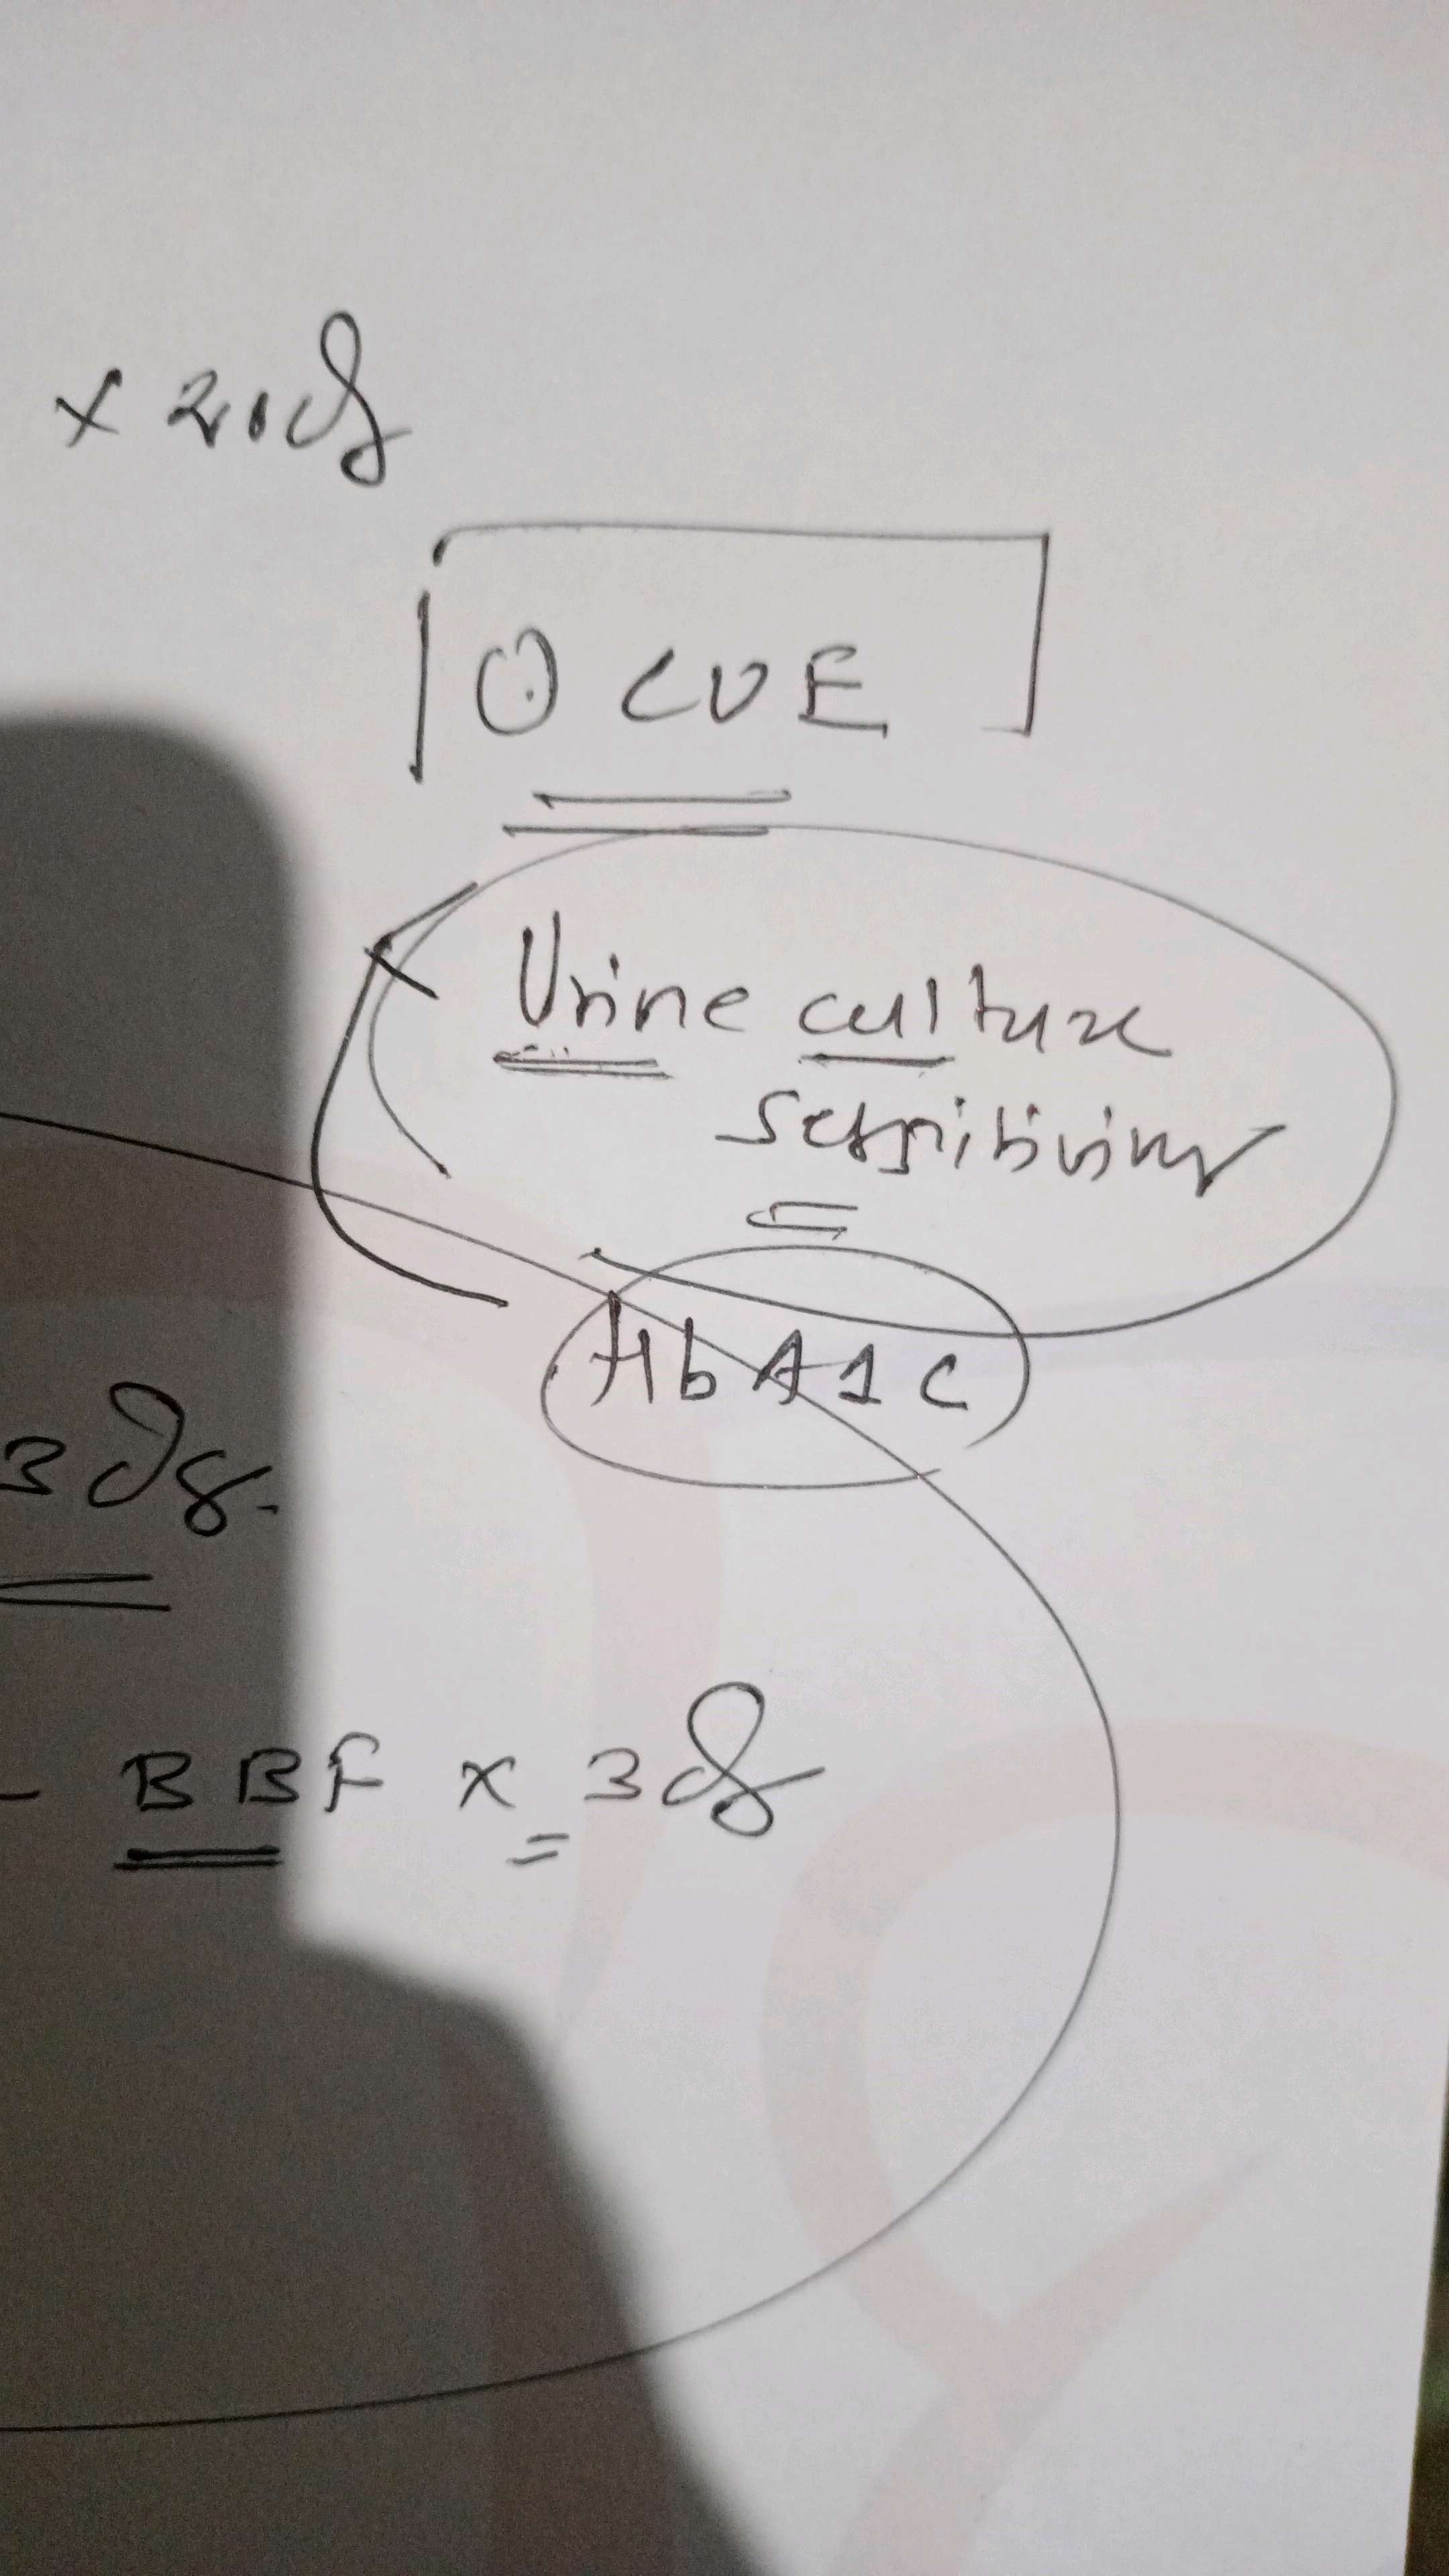 x 21 d
CUE
Urine culture
sensitivity
HbA1c
3 d
- BBF x 3 d